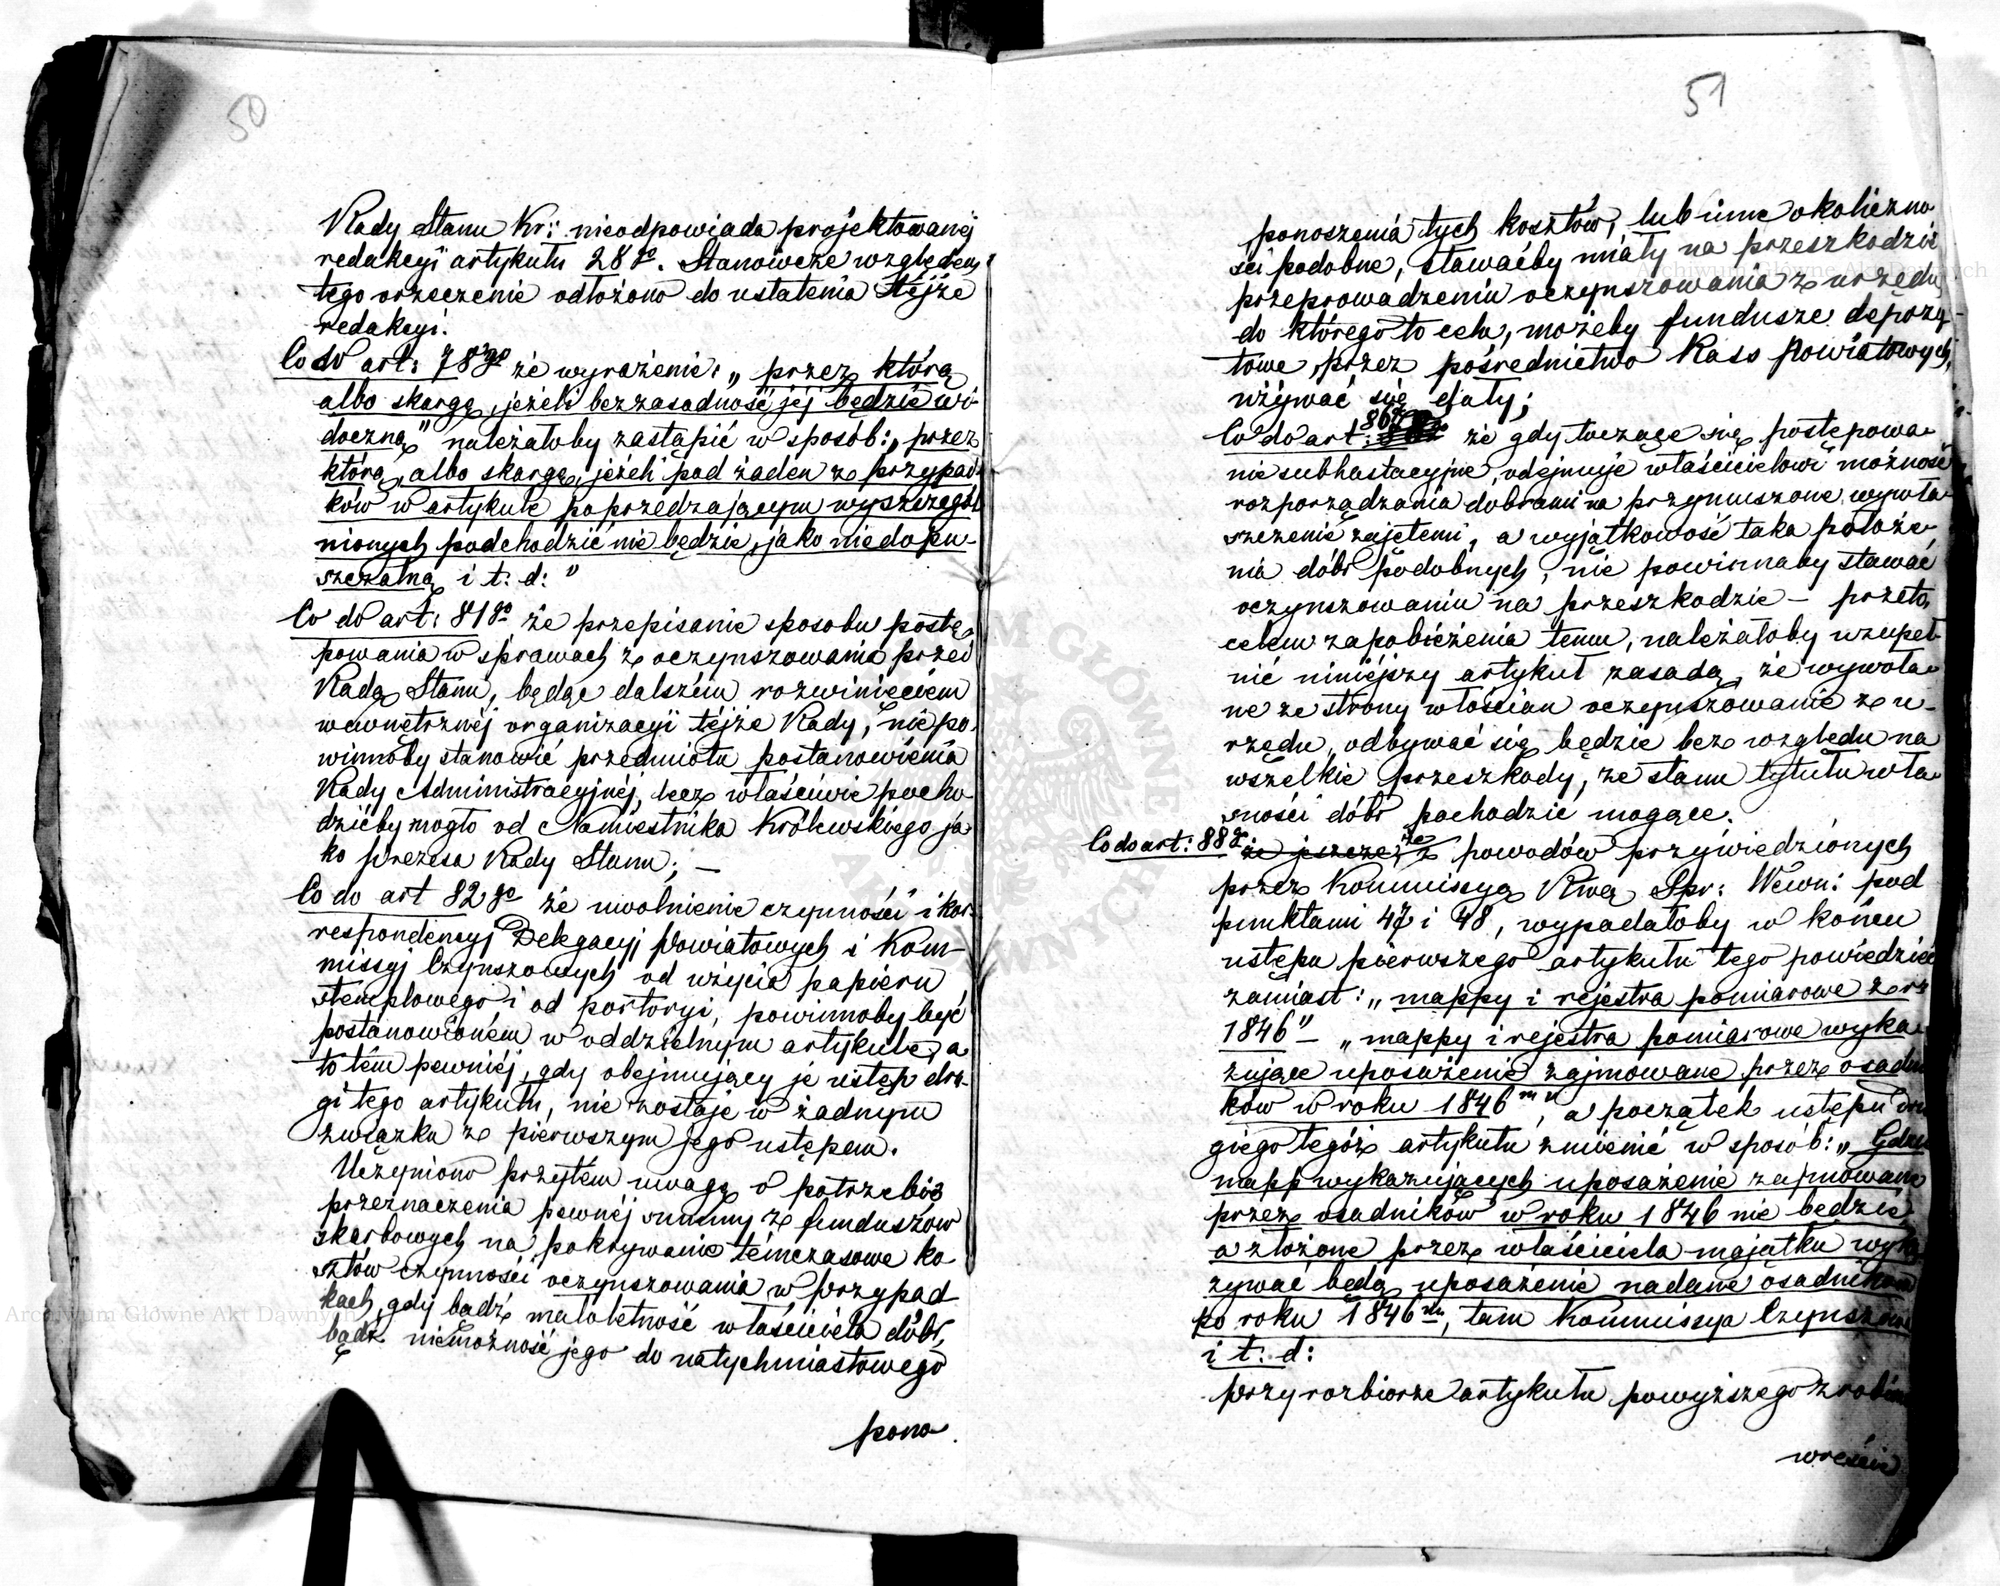 50
Rady Stanu Kr: nieodpowiada projektowanej
redakcyi artykułu 28go. Stanowcze względem
tego orzeczenie odłożono do ustalenia tejże
redakcyi.
Co do art: 78go że wyrażenie: „przez którą
albo skargę, jeżeli bezzasadność jej będzie wi-
doczną" należałoby zastąpić w sposób: „przez
którą, albo skargę, jeżeli pod żaden z przypad-
ków w artykule poprzedzającym wyszczegól-
nionych podchodzić nie będzie, jako niedopu-
szczalną i t: d: "
Co do art: 81go że przepisanie sposobu postę-
powania w sprawach z oczynszowania przed
Radą Stanu, będąc dalszém rozwinięciem
wewnętrznéj organizacyi téjże Rady, niepo-
winnoby stanowić przedmiotu postanowienia
Rady Administracyjnéj, lecz właściwie pocho-
dzićby mogło od Namiestnika Królewskiego ja-
ko prezesa Rady Stanu; —
Co do art 82go że uwolnienie czynności i kor-
respondencyj Delegacyj Powiatowych i Kom-
missyj Czynszowych od użycia papieru
stemplowego i od portoryi, powinnoby być
postanowioném w oddzielnym artykule, a
to tém pewniéj, gdy obejmujący je ustęp dru-
gi tego artykułu, nie zostaje w żadnym
związku z pierwszym jego ustępem.
Uczyniono przytém uwagę o potrzebie
przeznaczenia pewnéj summy z funduszów
skarbowych na pokrywanie témczasowe ko-
sztów czynności oczynszowania w przypad-
kach, gdy bądź małoletność właściciela dóbr,
bądź niemożność jego do natychmiastowego
pono
51
ponoszenia tych kosztów, lub inne okoliczno-
ści podobne, stawaćby miały na przeszkodzie
przeprowadzeniu oczynszowania z urzędu,
do którego to celu, możeby fundusze depozy-
towe przez pośrednictwo Kass Powiatowych,
używać się dały;
Co do art: 86go że gdy toczące się postępowa-
nie subhastacyjne, odejmuje właścicielowi możność
rozporządzania dobrami na przymuszone wywła-
szczenie zajętemi, a wyjątkowość taka położe-
nia dóbr podobnych, nie powinnaby stawać
oczynszowaniu na przeszkodzie — przeto,
celem zapobieżenia temu, należałoby uzupeł-
nić niniejszy artykuł zasadą, że wywoła-
ne ze strony włościan oczynszowanie z u-
rzędu, odbywać się będzie bez względu na
wszelkie przeszkody, ze stanu tytułu wła-
sności dóbr pochodzić mogące.
Co do art: 88go że z powodów przywiedzionych
przez Kommissyą Rwą Spr: Wewn: pod
punktami 47 i 48, wypadałoby w końcu
ustępu pierwszego artykułu tego powiedzieć
zamiast: „mappy i rejestra pomiarowe z r:
1846" — „mappy i rejestra pomiarowe wyka-
zujące uposażenie zajmowane przez osadni-
ków w roku 1846m", a początek ustępu dru-
giego tegóż artykułu zmienić w sposób: „Gdzie
mapp wykazujących uposażenie zajmowane
przez osadników w roku 1846 nie będzie,
a złożone przez właściciela majątku wyka-
zywać będą uposażenie nadane osadnikom
po roku 1846m, tam Kommissya Czynszowa
i t: d:
Przy rozbiorze artykułu powyższego zrobiono
wreście